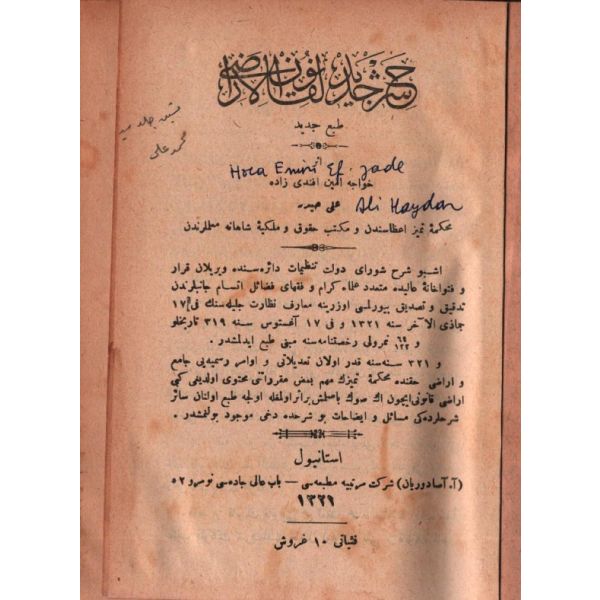 شرح جديد لقانون الاراضى
طبع جديد
محمد على
اثر
Hoca Emin Ef. zade
خواجه امين افندى زاده
على حيدر
Ali Haydar
محكمۀ تميز اعضاسندن و مكتب حقوق و ملكيۀ شاهانه معلملرندن
اشبو شرح شوراى دولت تنظيمات دائره سنده ويريلان قرار
و فتواخانۀ عاليده متعدد علماء كرام و فقهاى فضائل اتسام جانبلرندن
تدقيق و تصديق بيورلمسى اوزرينه معارف نظارت جليله سنك فى ١٧
جماذى الآخر سنه ١٣٢١ و فى ١٧ آغستوس سنه ٣١٩ تاريخلو
و نمرولى رخصتنامه سنه مبنى طبع ايدلمشدر .
و ٣٢١ سنه سنه قدر اولان تعديلاتى و اوامر رسميه يى جامع
و اراضى حقنده محكمۀ تميزك مهم بعض مقرراتنى محتوى اولديغى كبى
اراضى قانونى ايچون اك صوك باصلمش براثر اولمغله اولجه طبع اولنان سائر
شرحلرده كى مسائل و ايضاحات بو شرحده دخى موجود بولنمشدر .
استانبول
(آ. آصادوريان) شركت مرتبيه مطبعه سى — باب عالى جاده سى نومرو ٥٢
١٣٢١
فئياتى ١٠ غروش